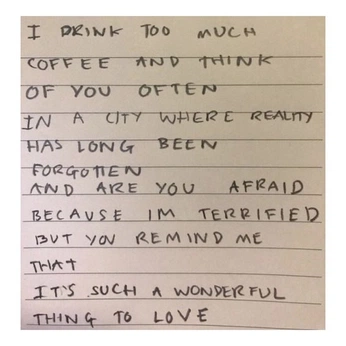 I DRINK TOO MUCH
COFFEE AND THINK
OF YOU OFTEN
IN A CITY WHERE REALITY
HAS LONG BEEN
FORGOTTEN
AND ARE YOU AFRAID
BECAUSE IM TERRIFIED
BUT YOU REMIND ME
THAT
IT'S SUCH A WONDERFUL
THING TO LOVE